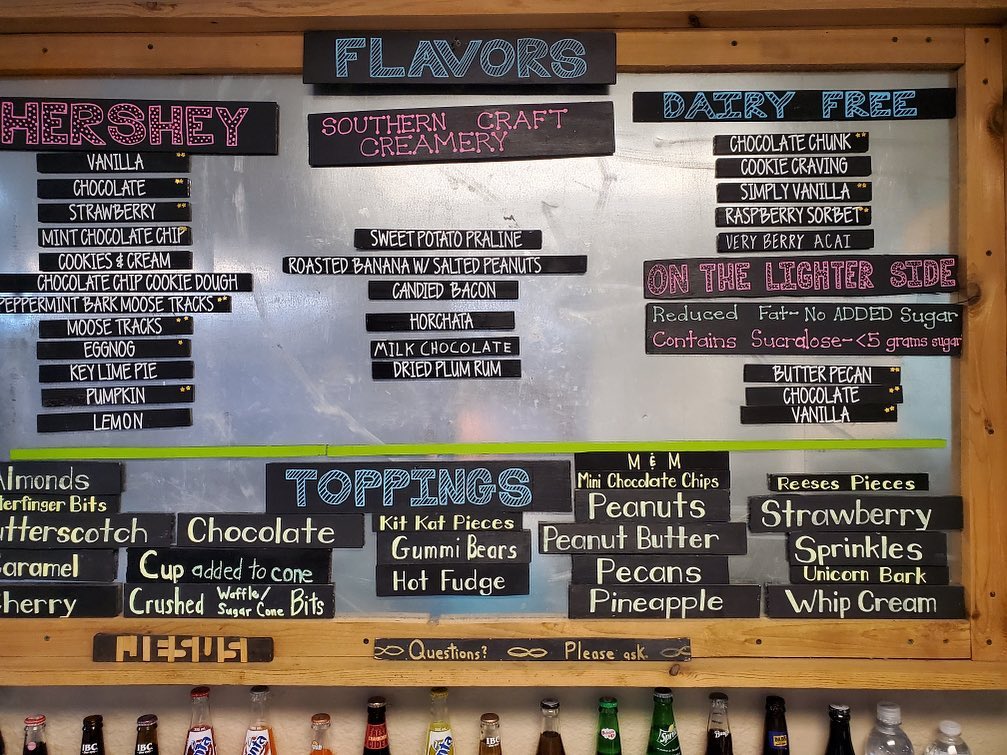 FLAVORS
HERSHEY
VANILLA **
CHOCOLATE **
STRAWBERRY **
MINT CHOCOLATE CHIP
COOKIES & CREAM
CHOCOLATE CHIP COOKIE DOUGH
PEPPERMINT BARK MOOSE TRACKS **
MOOSE TRACKS **
EGGNOG *
KEY LIME PIE
PUMPKIN **
LEMON
SOUTHERN CRAFT
CREAMERY
SWEET POTATO PRALINE
ROASTED BANANA W/ SALTED PEANUTS
CANDIED BACON
HORCHATA
MILK CHOCOLATE
DRIED PLUM RUM
DAIRY FREE
CHOCOLATE CHUNK **
COOKIE CRAVING
SIMPLY VANILLA **
RASPBERRY SORBET*
VERY BERRY ACAI
ON THE LIGHTER SIDE
Reduced Fat- No ADDED Sugar
Contains Sucralose-<5 grams sugar
BUTTER PECAN **
CHOCOLATE **
VANILLA **
TOPPINGS
Almonds
terfinger Bits
utterscotch
aramel
herry
Chocolate
Cup added to cone
Crushed Waffle/ Sugar Cone Bits
Kit Kat Pieces
Gummi Bears
Hot Fudge
M & M
Mini Chocolate Chips
Peanuts
Peanut Butter
Pecans
Pineapple
Reeses Pieces
Strawberry
Sprinkles
Unicorn Bark
Whip Cream
JESUS
Questions? Please ask.
IBC
IBC
IBC
Sprite